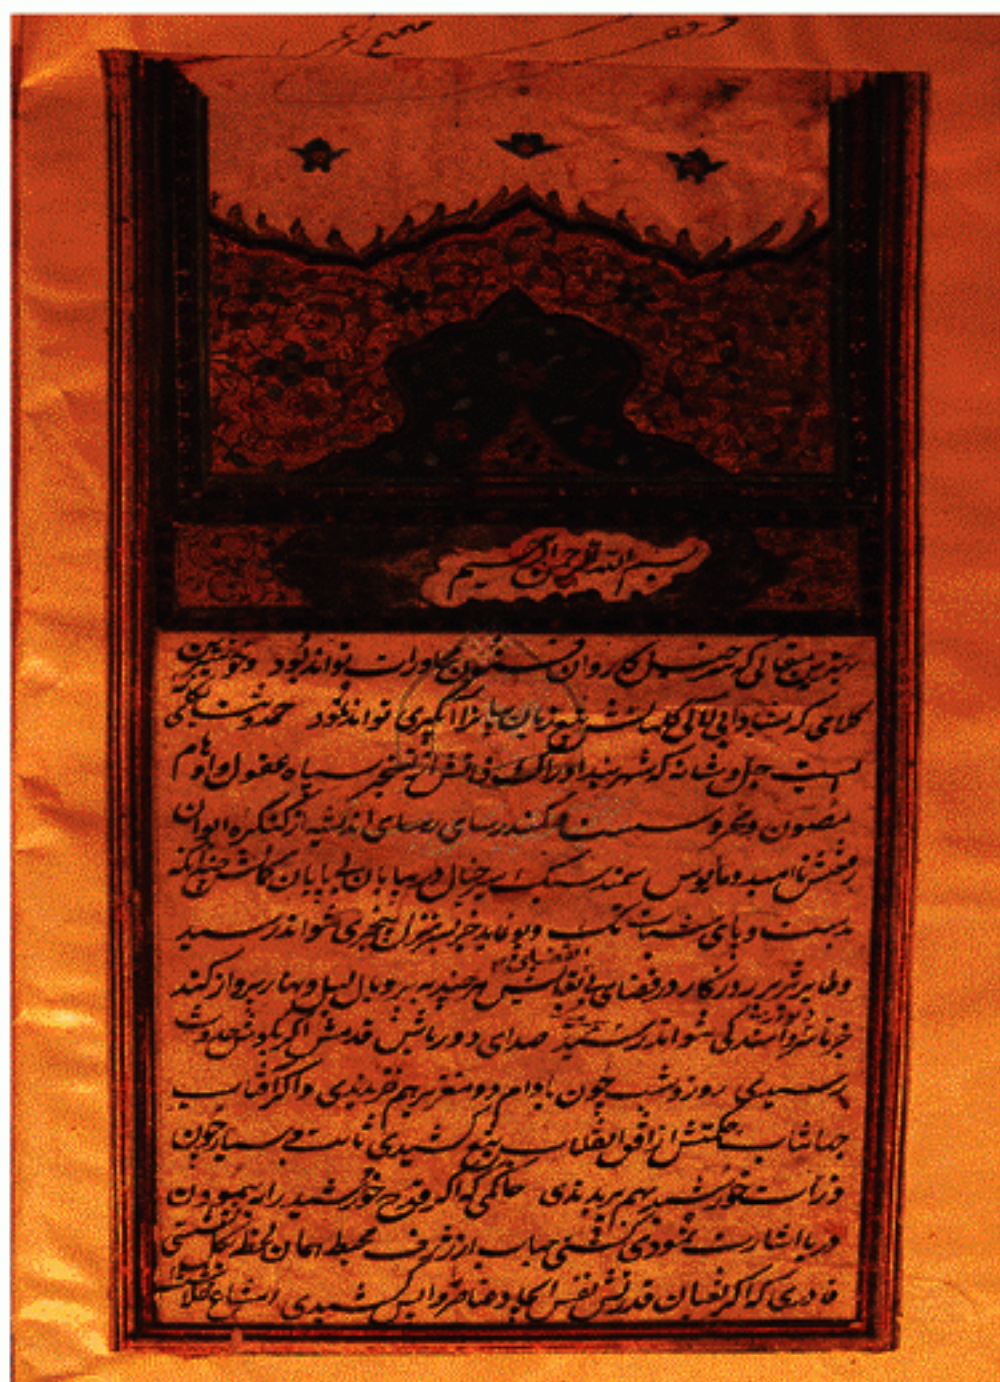 بسم الله الرحمن الرحیم
بهترین مقالی که سرخیل کاروان فنون محاورات تواند بود و خوشترین
کلامی که شادابی لالی کلماتش زبان را تواند بود حمد و ثنای
است جل و شانه که شهربند ادراک ذاتش از تسخیر سپاه عقول و اوهام
مصون و محروست و کمند رسای رسای اندیشه از کنگره ایوان
ناامید و مایوس سمند سبک سیر خیال در بیابان بی پایان کمالش چندانکه
بدست و پای شتاب تک و پو نماید جز بسر منزل بیخبری نتواند رسید
و طایر تیز پر روزگار در فضای بقایش هر چند به پر و بال لیل و نهار پرواز کند
جز نتواند رسید صدای دورباش قدمش اگر بگوش حدوث
رسیدی روز و شب چون بادام دو مغز بر هم خزیدندی و اگر آفتاب
جهانتاب حکمتش از افق انقلاب تیغ کشیدی ثابت و سیار چون
ذرات خورشید بهم بریدندی حاکمی که اگر خورشید را به پیمودن
دریا اشارت نمودی کشتی حباب از ژرف محیط
قادری که اگر قدرتش نفس ایجاد واپس کشیدی